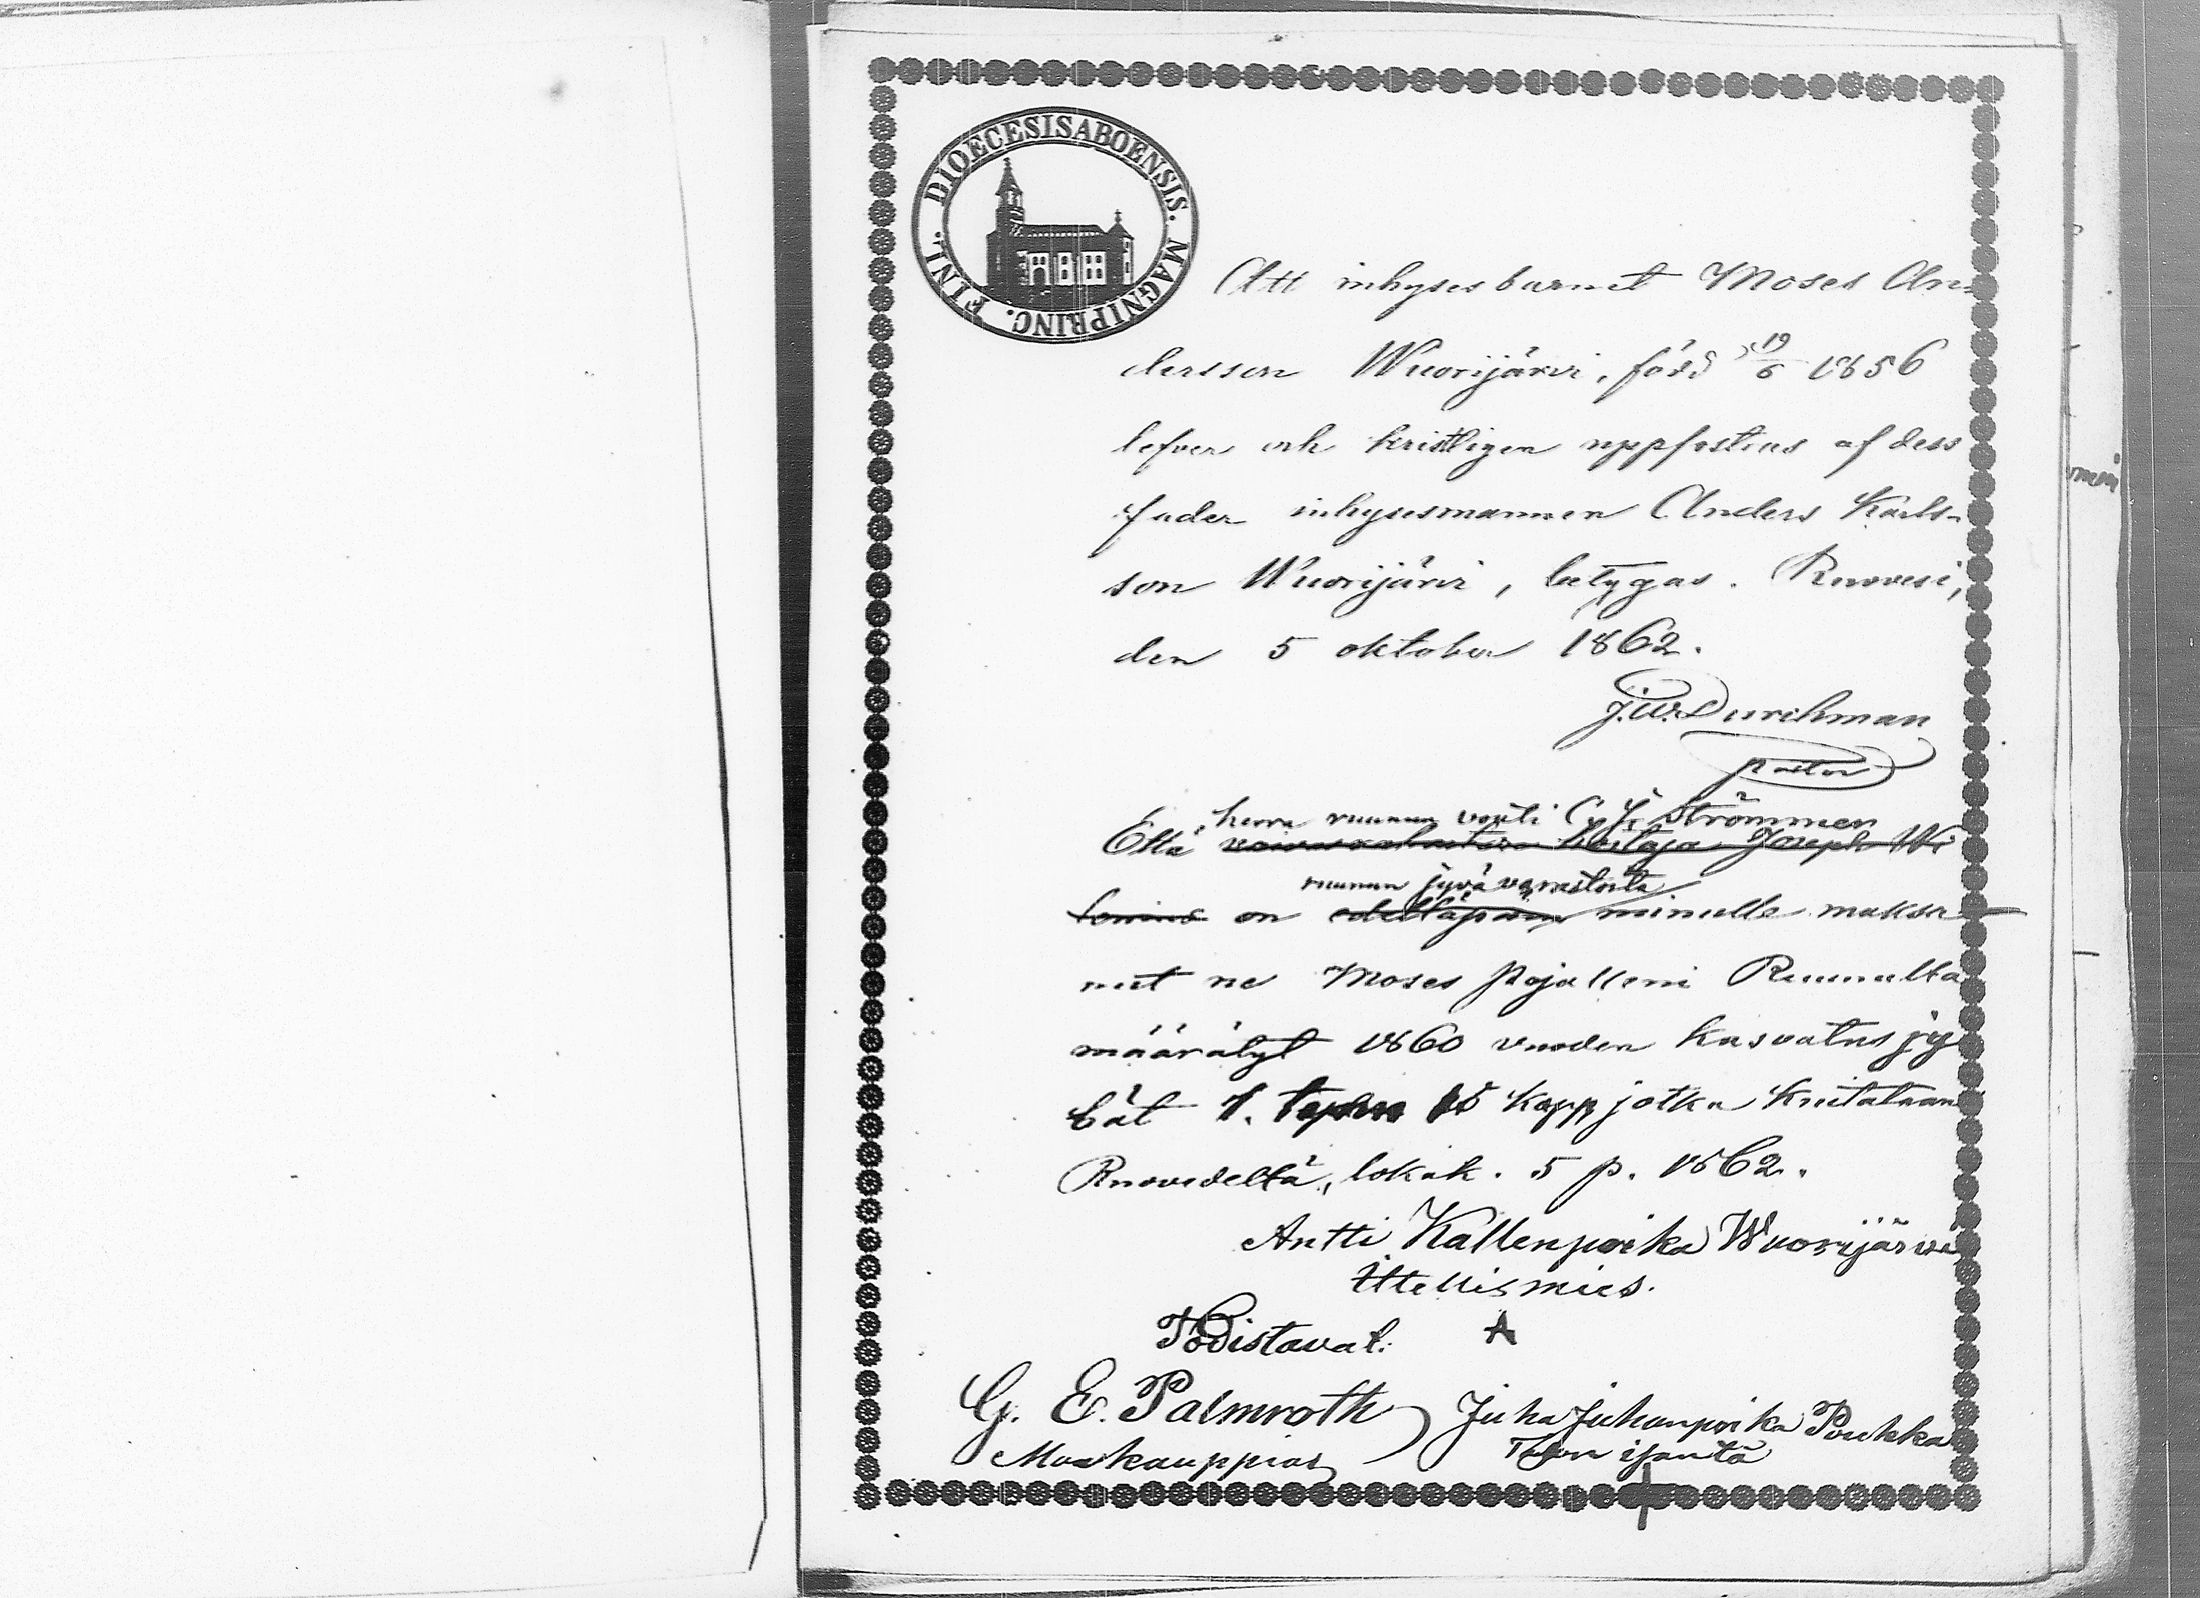 DIOECESIS ABOENSIS. MAGNI PRINC. FINL.
Att inhysesbarnet Moses An-
dersson Wuorijärvi, född 19/6 1856
lefver och kristligen uppfostras af dess
fader inhysesmannen Anders Karls-
son Wuorijärvi, betygas. Ruovesi,
den 5 oktober 1862.
J. W. Durchman
pastor
herra ruunun vouti C. J. Strömmer
Että hoitaja Joseph Wi
ruunun jyvävarastosta
lenius on edeltäpäin minulle maksa
nut ne Moses Pojalleni Ruunulta
määrätyt 1860 vuoden kasvatus jy
vät 1. kapp jotka kuitataan
Ruovedeltä, lokak. 5 p. 1862.
Antti Kallenpoika Wuorijärvi
Itellismies.
Todistavat:
G. E. Palmroth Juha Juhanpoika Poukka
Maakauppias Talon isäntä